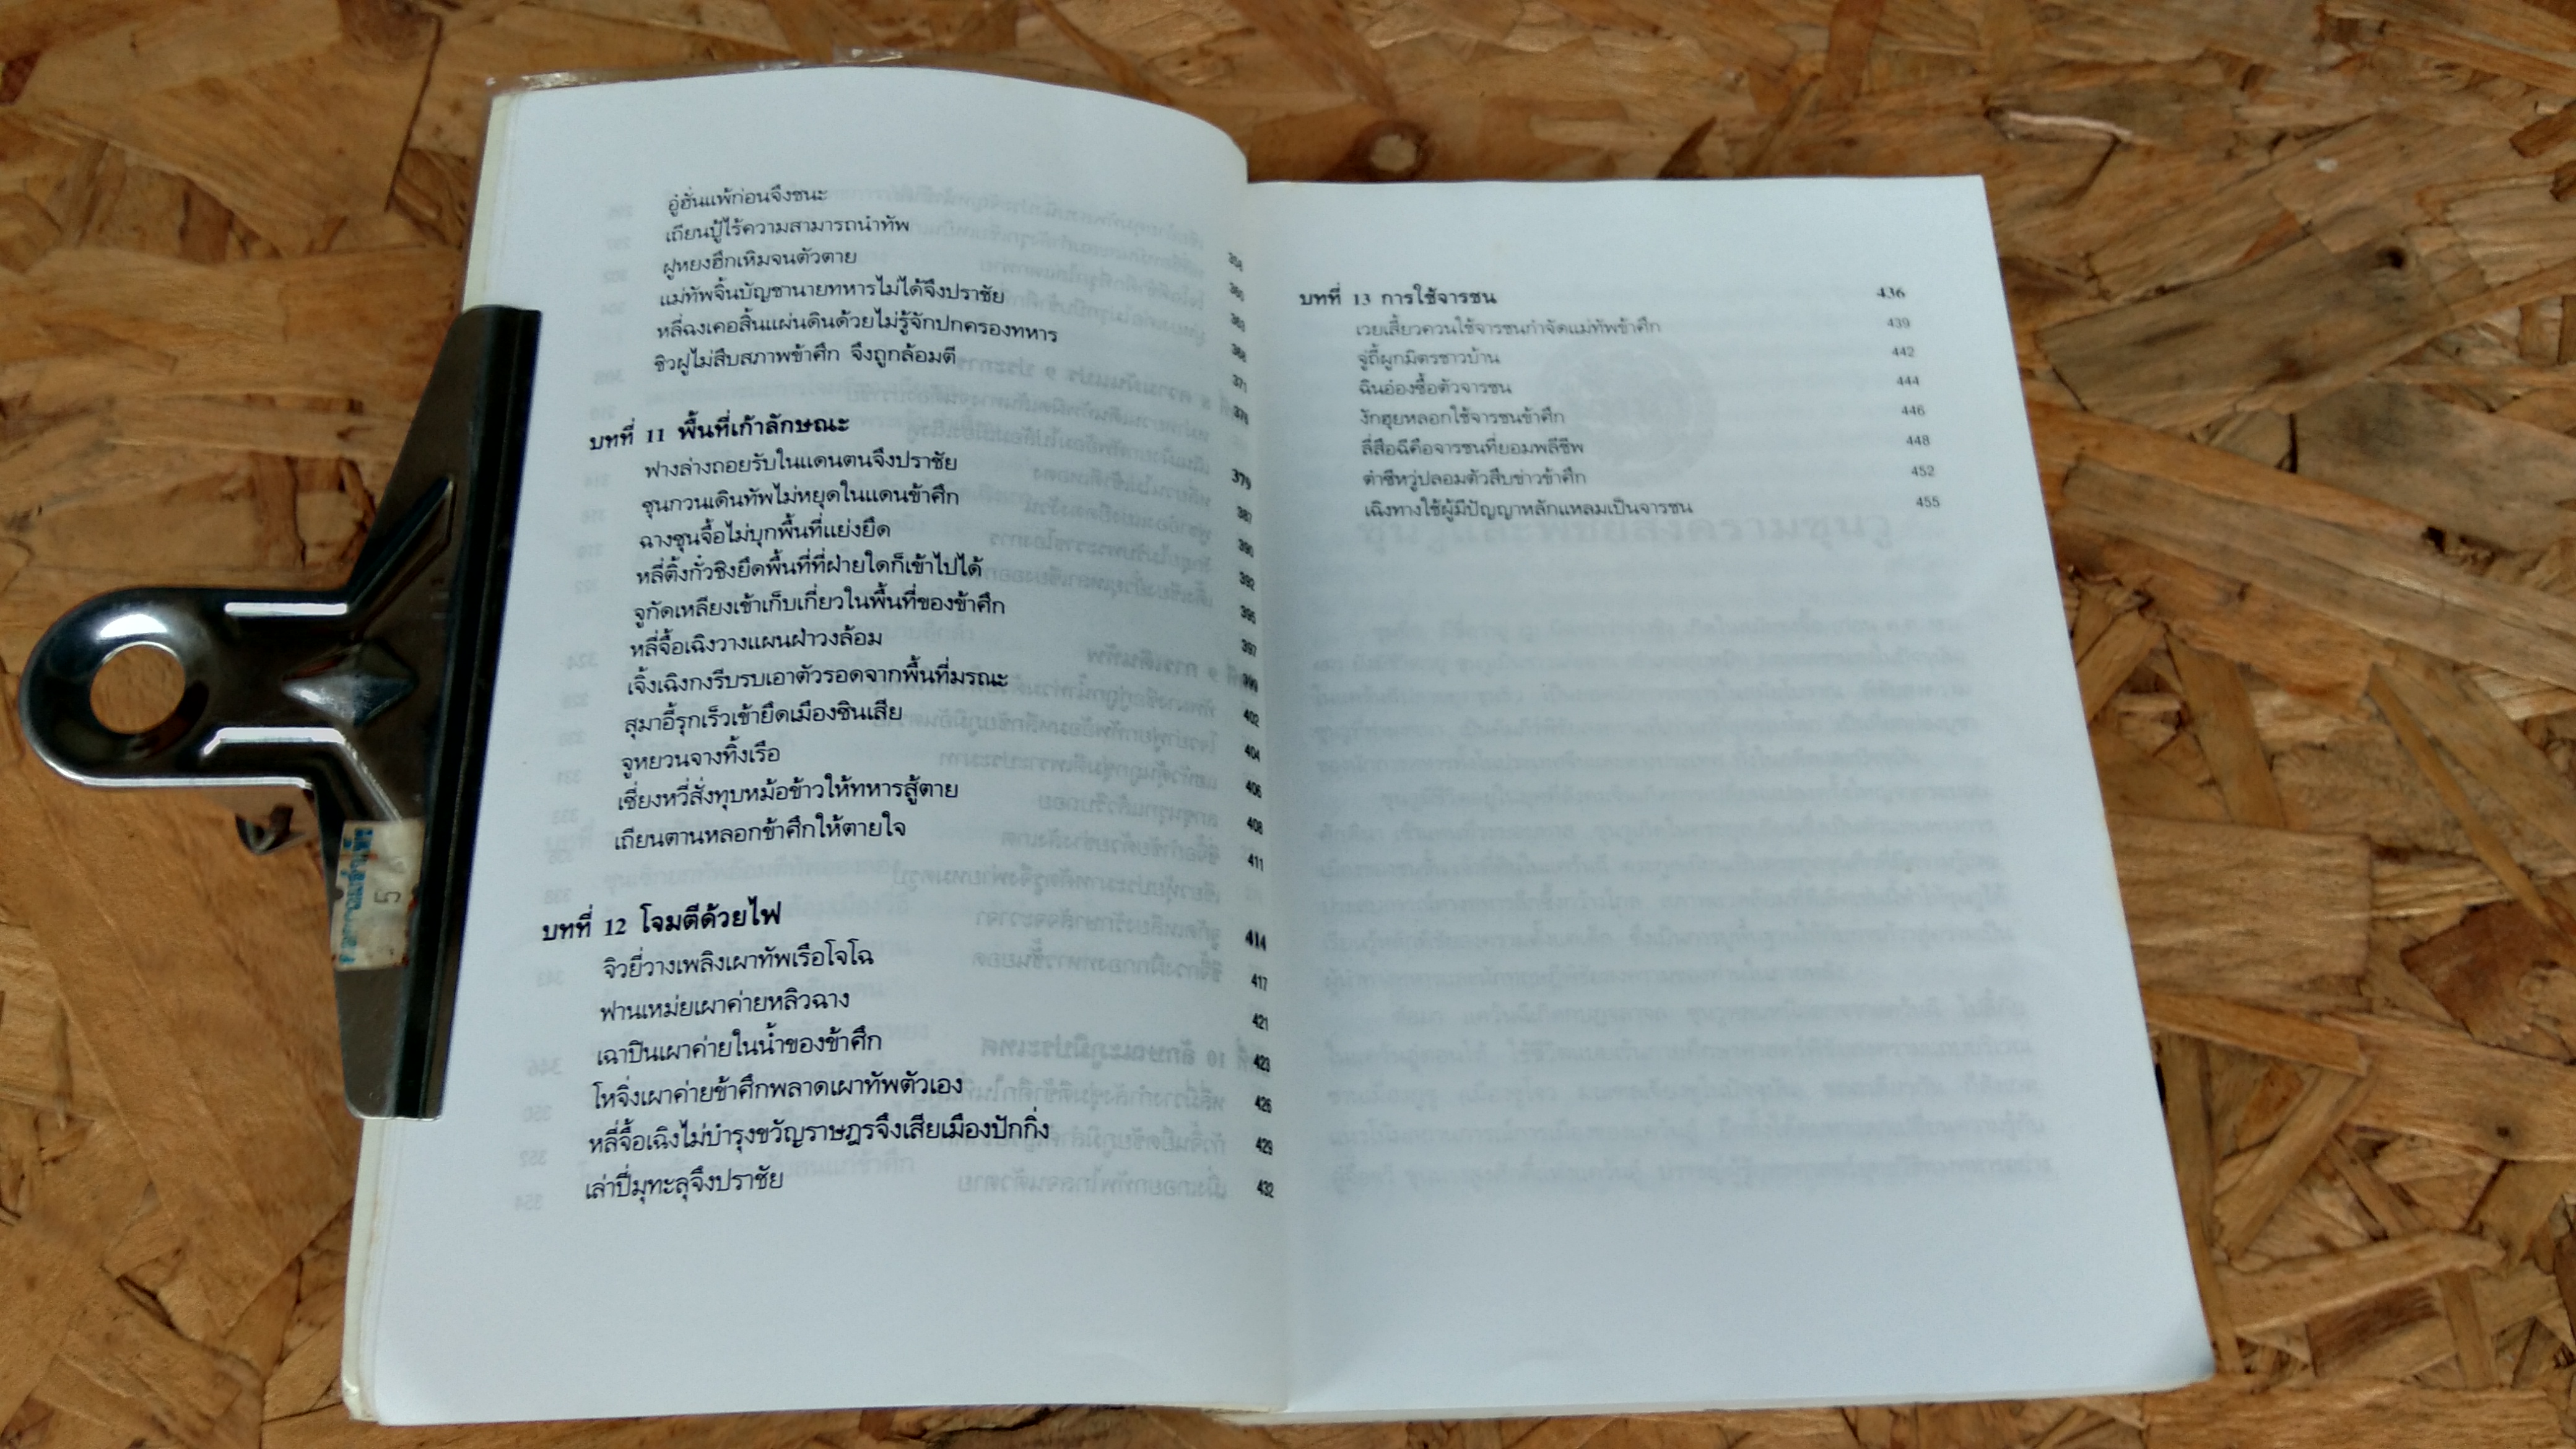 อู่ฮั่นแพ้ก่อนจึงชนะ 358
เถียนปู้ไร้ความสามารถนำทัพ 360
ฝูหยงฮึกเหิมจนตัวตาย 363
แม่ทัพจิ้นบัญชานายทหารไม่ได้จึงปราชัย 368
หลี่ฉงเคอสิ้นแผ่นดินด้วยไม่รู้จักปกครองทหาร 371
ชิวฝูไม่สืบสภาพข้าศึก จึงถูกล้อมตี 376
บทที่ 11 พื้นที่เก้าลักษณะ 379
ฟางล่างถอยรับในแดนตนจึงปราชัย 387
ซุนกวนเดินทัพไม่หยุดในแดนข้าศึก 390
ฉางชุนจื้อไม่บุกพื้นที่แย่งยึด 392
หลี่ติ้งกั๋วชิงยึดพื้นที่ที่ฝ่ายใดก็เข้าไปได้ 395
จูกัดเหลียงเข้าเก็บเกี่ยวในพื้นที่ของข้าศึก 397
หลี่จื้อเฉิงวางแผนฝ่าวงล้อม 399
เจิ้งเฉิงกงรีบรบเอาตัวรอดจากพื้นที่มรณะ 402
สุมาอี้รุกเร็วเข้ายึดเมืองซินเสีย 404
จูหยวนจางทิ้งเรือ 406
เซี่ยงหวี่สั่งทุบหม้อข้าวให้ทหารสู้ตาย 408
เถียนตานหลอกข้าศึกให้ตายใจ 411
บทที่ 12 โจมตีด้วยไฟ 414
จิวยี่วางเพลิงเผาทัพเรือโจโฉ 417
ฟานเหม่ยเผาค่ายหลิวฉาง 421
เฉาปินเผาค่ายในน้ำของข้าศึก 423
โหจิ่งเผาค่ายข้าศึกพลาดเผาทัพตัวเอง 426
หลี่จื้อเฉิงไม่บำรุงขวัญราษฎรจึงเสียเมืองปักกิ่ง 429
เล่าปี่มุทะลุจึงปราชัย 432
บทที่ 13 การใช้จารชน 436
เวยเสี้ยวควนใช้จารชนกำจัดแม่ทัพข้าศึก 439
จู่ถี้ผูกมิตรชาวบ้าน 442
ฉินอ๋องซื้อตัวจารชน 444
งักฮุยหลอกใช้จารชนข้าศึก 446
ลี่สือฉีคือจารชนที่ยอมพลีชีพ 448
ต๋าซีหวู่ปลอมตัวสืบข่าวข้าศึก 452
เฉิงทางใช้ผู้มีปัญญาหลักแหลมเป็นจารชน 455